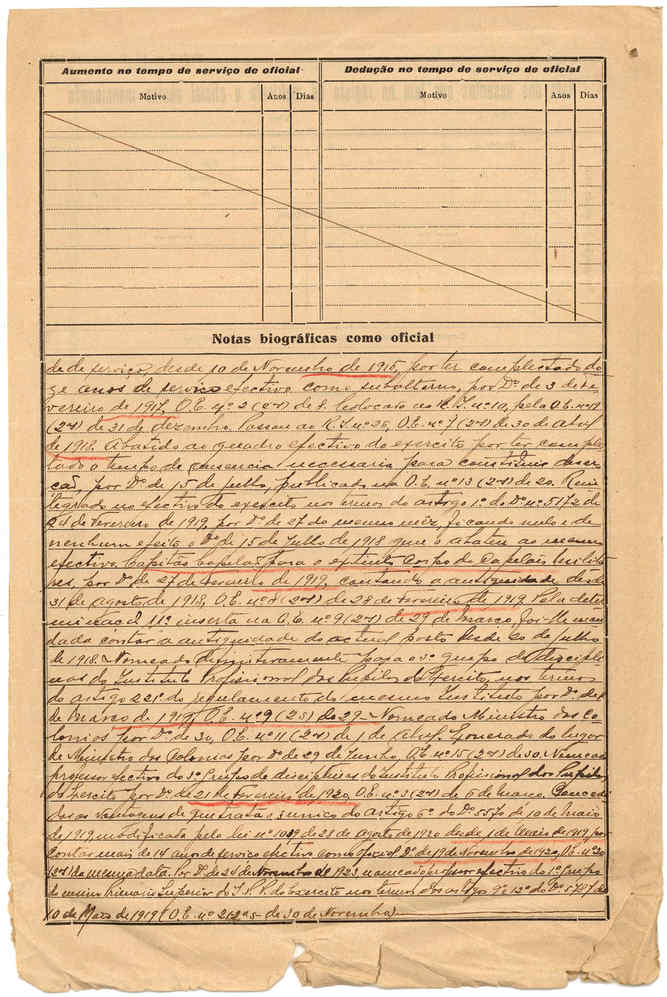 Aumento no tempo de serviço de oficial
Dedução no tempo de serviço de oficial
Motivo
Anos
Dias
Motivo
Anos
Dias
Notas biográficas como oficial
de de serviço, desde 10 de Novembro de 1915, por ter completado do
ze anos de serviço efectivo como subalterno, por Dº de 3 de Fe
vereiro de 1917, O.E. nº 2 (2ª)
(2ª) de 31 de dezembro. Passou ao R.I. nº 28, O.E. nº 7 (2ª) de 30 de Abril
de 1918. Abatido ao quadro efectivo do exercito por ter comple
tado o tempo de ausencia necessario para constituir deser
ção, por Dº de 15 de Julho, publicado na O.E. nº 13 (2ª) de 20. Rein
tegrado no efectivo do exercito nos termos do artigo 1º do Dº nº 5172 de
24 de Fevereiro de 1919, por Dº de 27 do mesmo mez, ficando nulo e de
nenhum efeito o Dº de 15 de Julho de 1918 que o abateu ao mesmo
efectivo. Capitão Capelão para o extinto corpo de Capelães milita
res, por Dº de 27 de Fevereiro de 1919, contando a antiguidade desde
31 de agosto de 1918, O.E. (2ª) de 28 de Fevereiro de 1919. Pela deter
minação 11ª inserta na O.E. nº 9 (2ª) de 29 de Março, foi-lhe man
dada contar a antiguidade do actual posto desde 20 de Julho
de 1918. Nomeado definitivamente para o grupo de discipli
nas do Instituto Profissional dos Pupilos do Exercito, nos termos
do artigo 221º do regulamento do mesmo Instituto por Dº de
de março de 1919, O.E. nº 9 (2ª) de 29. Nomeado Ministro das Co
lonias por Dº de 30, O.E. nº 11 (2ª) de 1 de Abril. Exonerado do lugar
de Ministro das Colonias por Dº de 29 de Junho, O.E. nº 15 (2ª) de 30. Nomeado
professor efectivo do 3º Grupo de disciplinas do Instituto Profissional dos Pupilos
do Exercito por Dº de 21 de Fevereiro de 1920, O.E. nº 3 (2ª) de 6 de março. Concedi
das as vantagens do artigo 6º do Dº 5570 de 10 de Maio
de 1919, modificado pela lei nº 1039 de 28 de agosto de 1920 desde 1 de Maio de 1919, por
contar mais de 14 anos de serviço efectivo como oficial Dº de 19 de Novembro de 1920, O.E. nº 20
(2ª) da mesma data. Por Dº de 24 de Novembro de 1923 nomeado professor efectivo do 1º grupo
do ensino Primario Superior do I.P.P. do Exercito nos termos do artigo 12º do Dº 5787 de
10 de Maio de 1919 (O.E. de 30 de Novembro)